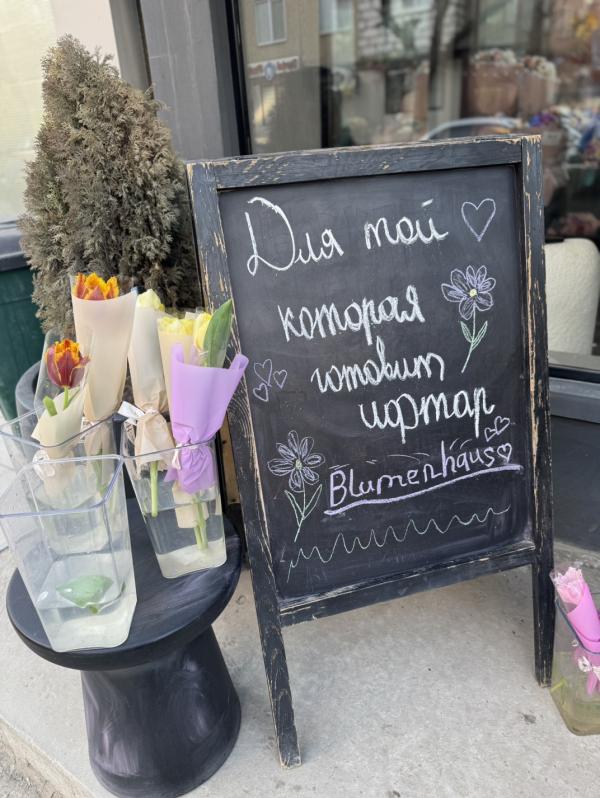 Для той
которая
готовит
ифтар
Blumenhaus